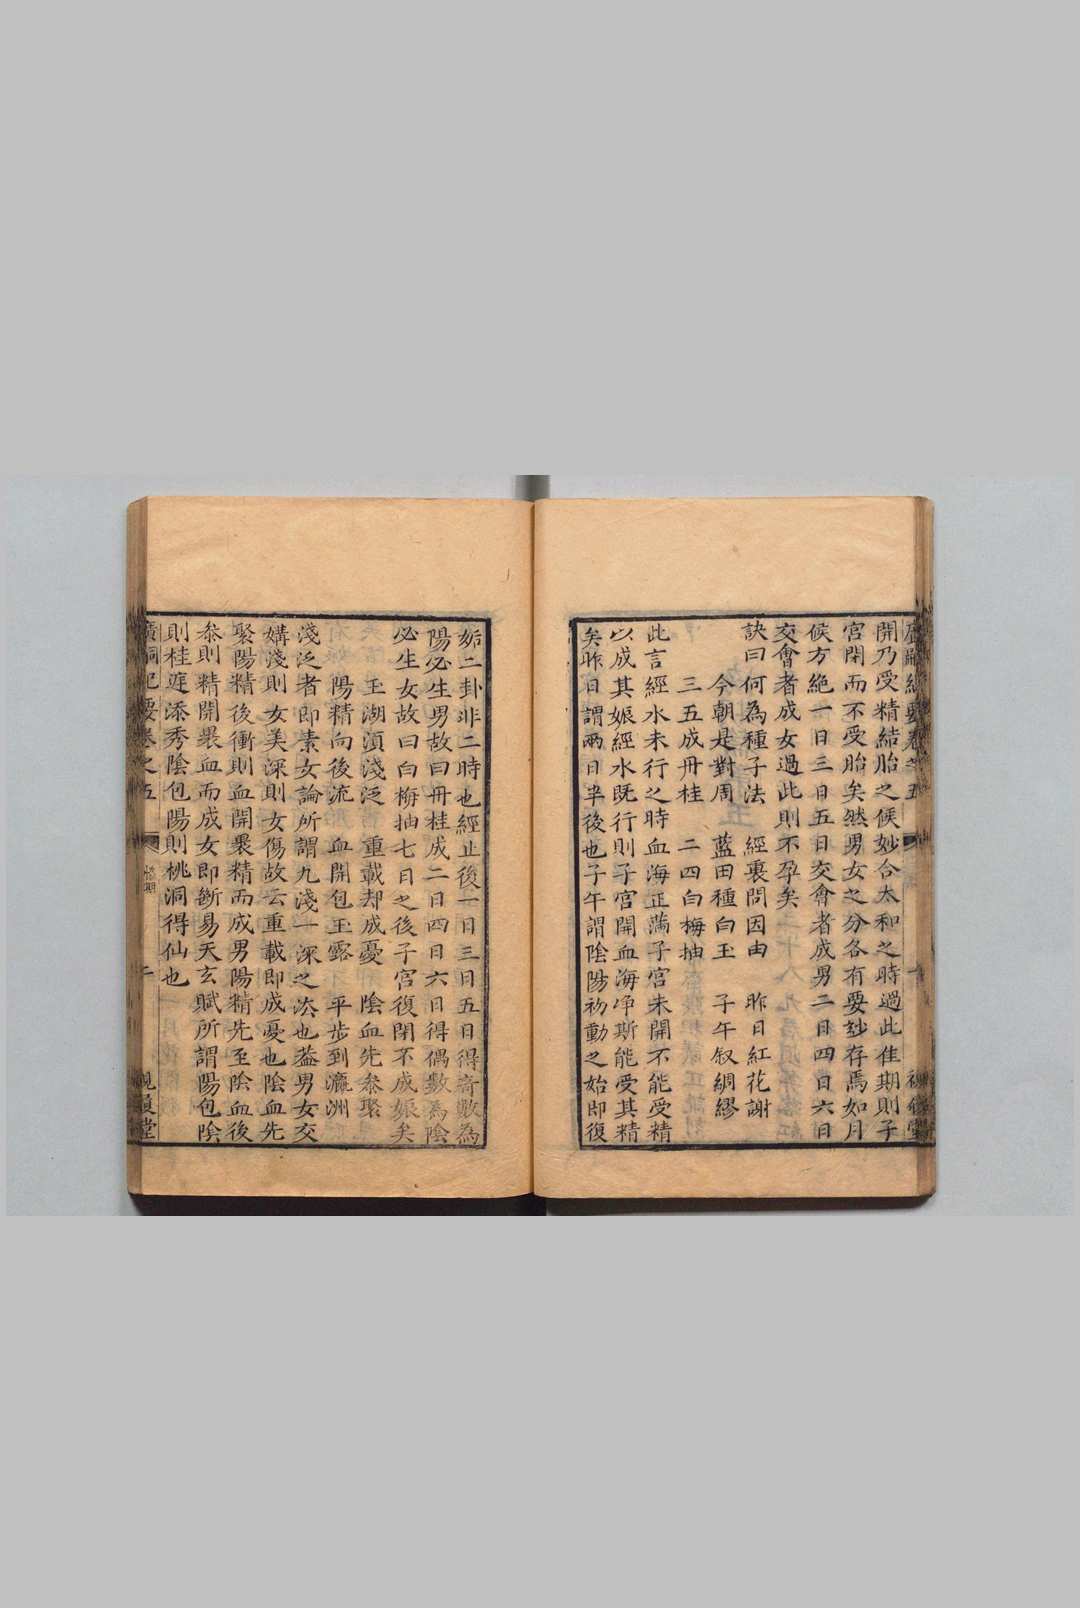 開乃受精結胎之候妙合太和之時過此佳期則子
宮閉而不受胎矣然男女之分各有要玅存焉如月
候方絶一日三日五日交會者成男二日四日六日
交會者成女過此則不孕矣
訣曰何為種子法　經裏問因由　昨日紅花謝
今朝是對周　藍田種白玉　子午叙綢繆
三五成丹桂　二四白梅抽
此言經水未行之時血海正滿子宮未開不能受精
以成其娠經水既行則子宮開血海淨斯能受其精
矣昨日謂兩日半後也子午謂陰陽初動之始即復
姤二卦非二時也經止後一日三日五日得奇數為
陽必生男故曰丹桂成二日四日六日得偶數為陰
必生女故曰白梅抽七日之後子宮復閉不成娠矣
玉湖湏淺泛　重載却成憂　陰血先叅聚
陽精向後流　血開包玉露　平步到瀛洲
淺泛者即素女論所謂九淺一深之法也葢男女交
媾淺則女美深則女傷故云重載即成憂也陰血先
聚陽精後衝則血開褁精而成男陽精先至陰血後
叅則精開褁血而成女即斷易天玄賦所謂陽包陰
則桂庭添秀陰包陽則桃洞得仙也
廣嗣紀要卷之五
二
視履堂